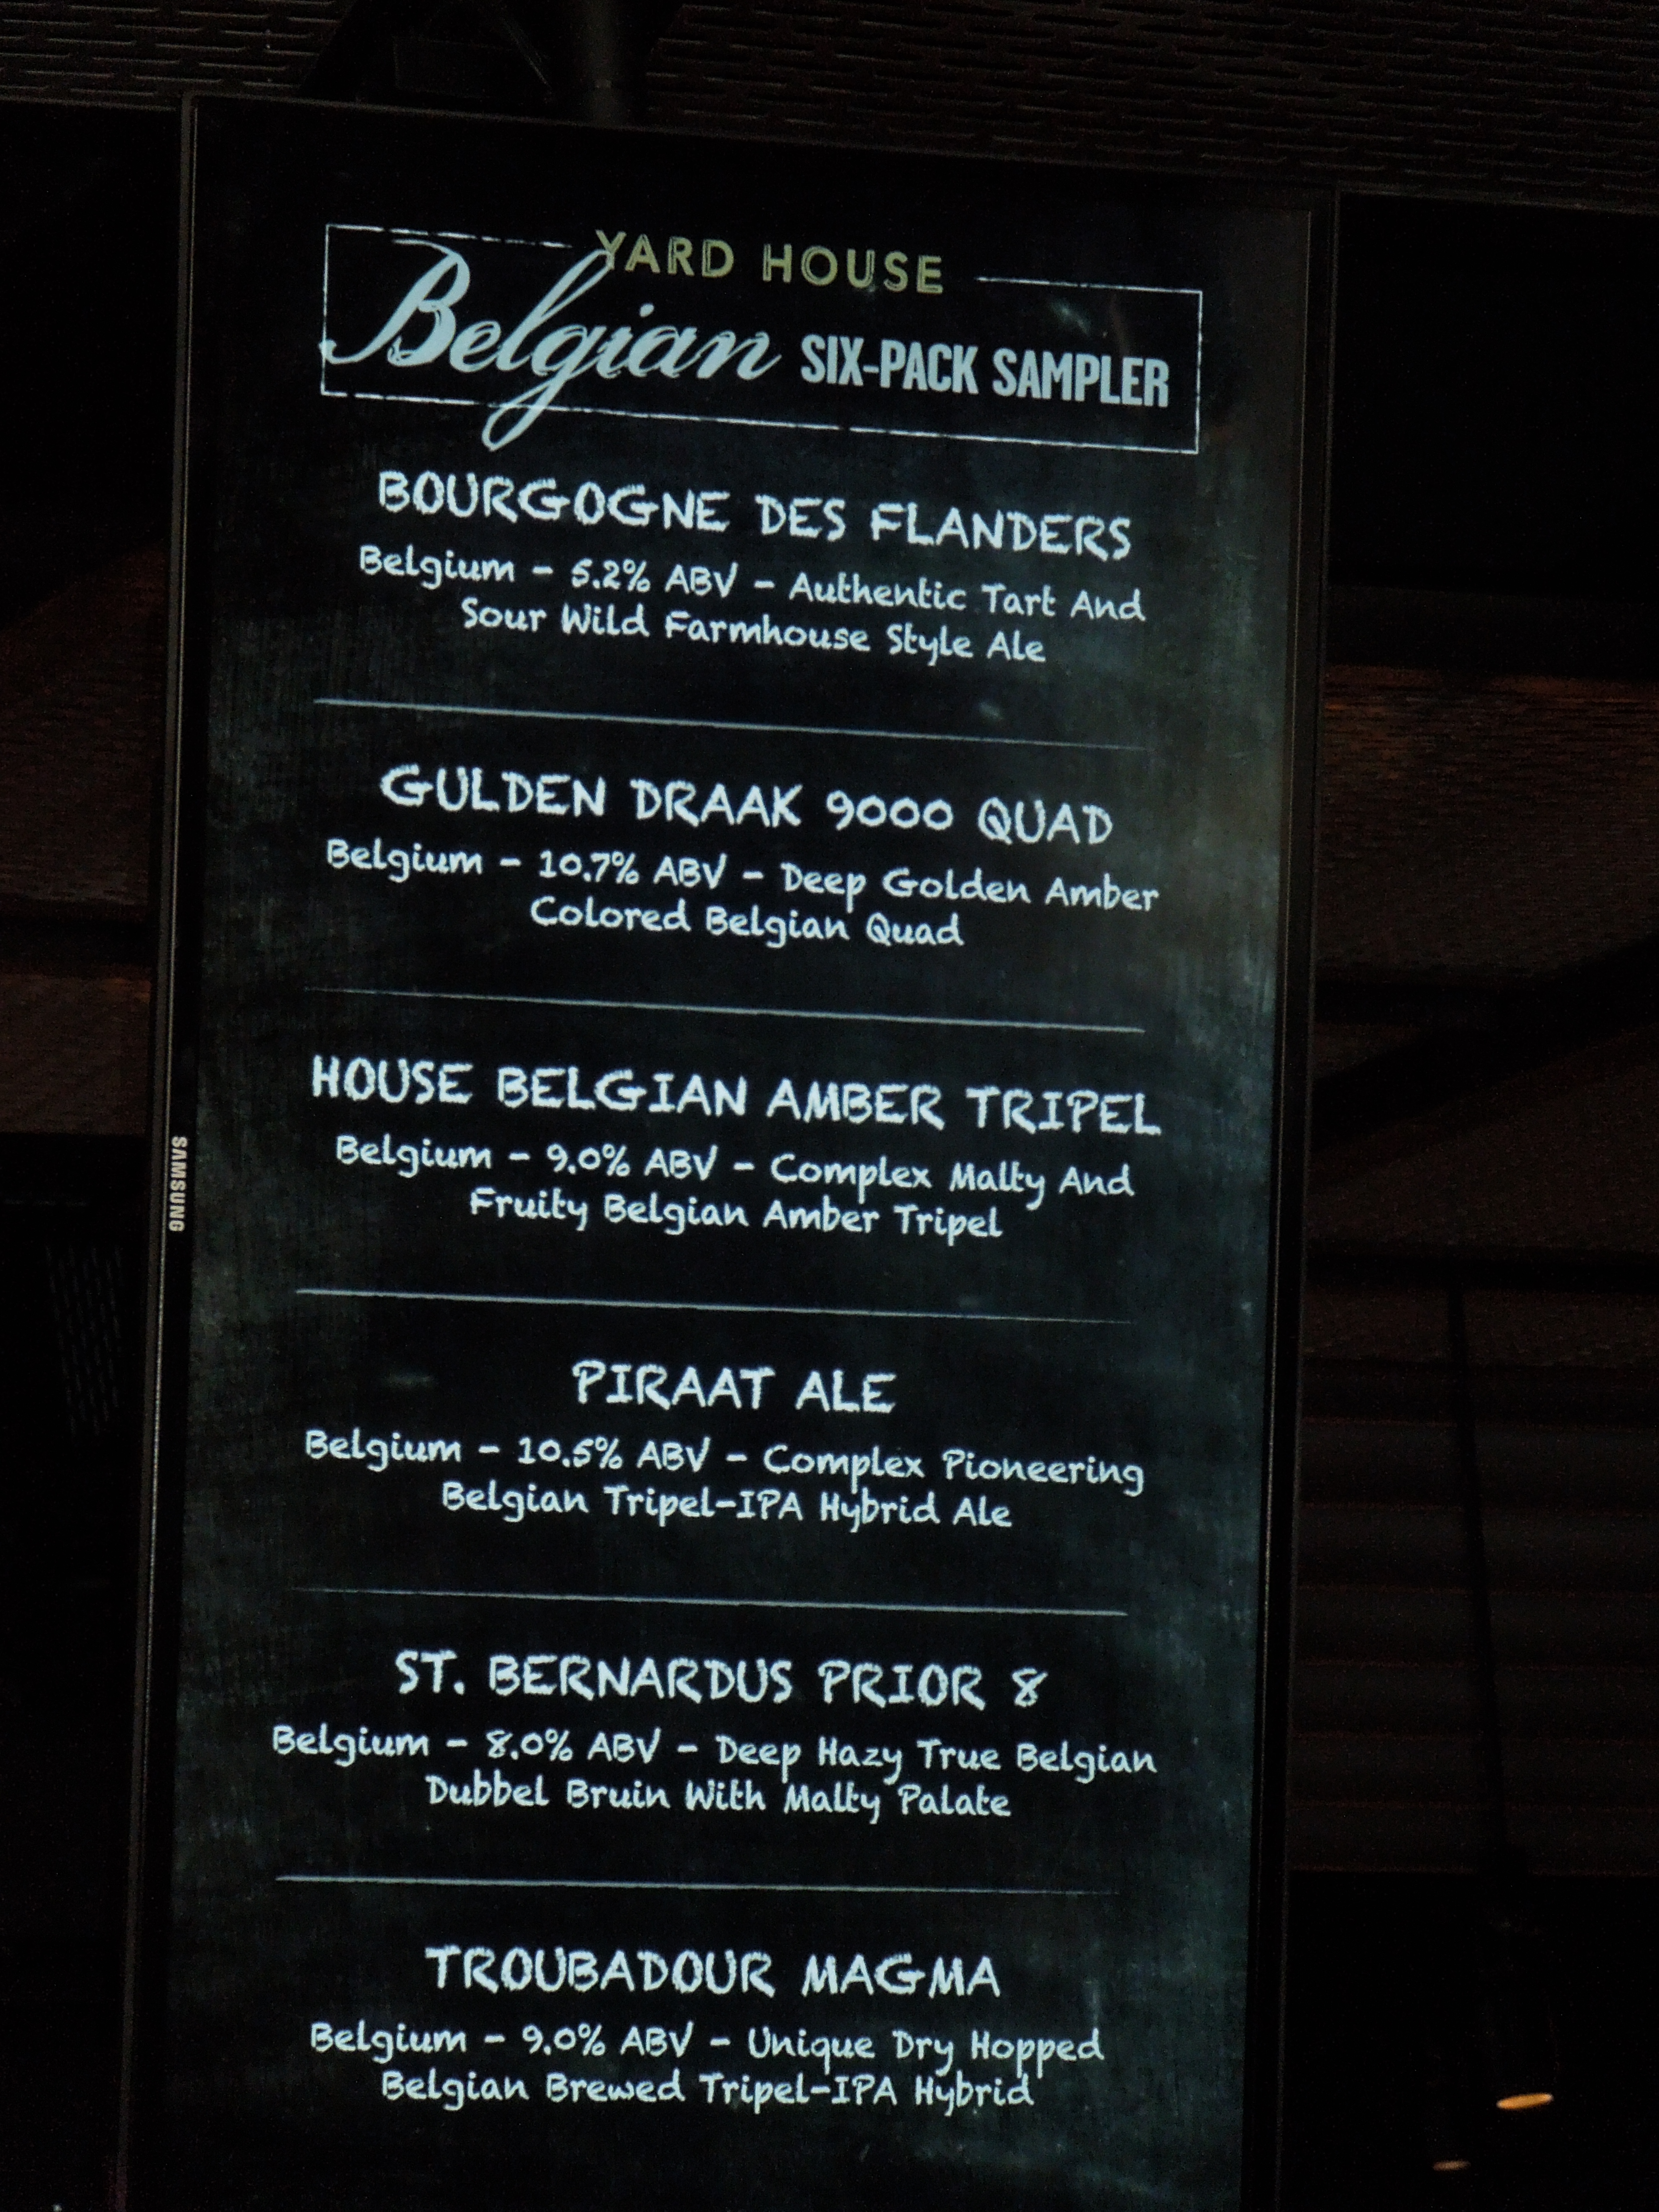 YARD HOUSE
Belgian SIX-PACK SAMPLER
BOURGOGNE DES FLANDERS
Belgium - 5.2% ABV - Authentic Tart And
Sour Wild Farmhouse Style Ale
GULDEN DRAAK 9000 QUAD
Belgium - 10.7% ABV - Deep Golden Amber
Colored Belgian Quad
HOUSE BELGIAN AMBER TRIPEL
Belgium - 9.0% ABV - Complex Malty And
Fruity Belgian Amber Tripel
PIRAAT ALE
Belgium - 10.5% ABV - Complex Pioneering
Belgian Tripel-IPA Hybrid Ale
ST. BERNARDUS PRIOR 8
Belgium - 8.0% ABV - Deep Hazy True Belgian
Dubbel Bruin With Malty Palate
TROUBADOUR MAGMA
Belgium - 9.0% ABV - Unique Dry Hopped
Belgian Brewed Tripel-IPA Hybrid
SAMSUNG